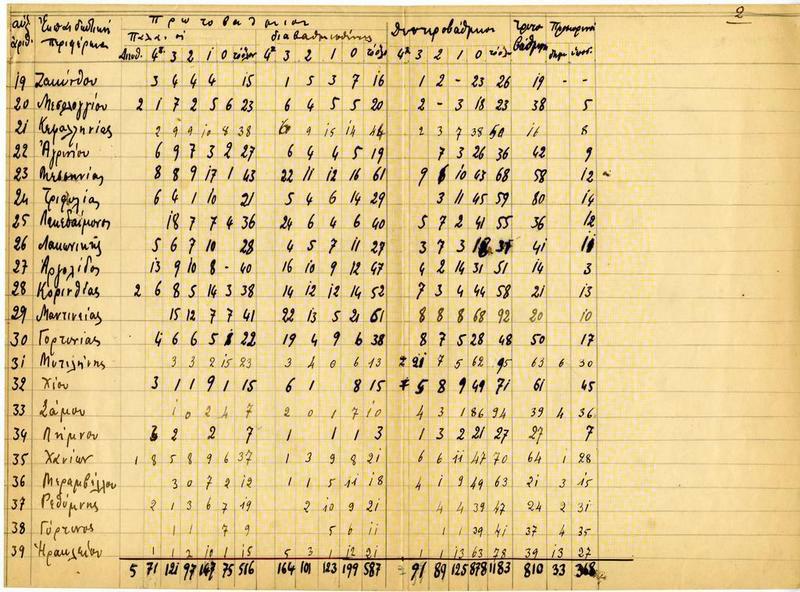 2
αὔξ. Ἐκπαιδευτική Πρωτοβάθμιοι Δευτεροβάθμιοι Τριτο Προσωρινοί
ἀριθ. περιφέρεια Παλαιοί διαβαθμισθέντες βάθμιοι
Διευθ. 4ης 3 2 1 0 σύνολον 4ης 3 2 1 0 σύνολ 4ης 3 2 1 0 σύνολ
19 Ζακύνθου 3 4 4 4 15 1 5 3 7 16 1 2 - 23 26 19 - -
20 Μεσολογγίου 2 1 7 2 5 6 23 6 4 5 5 20 2 - 3 18 23 38 5
21 Κεφαλληνίας 2 9 9 10 8 38 6 9 15 14 44 2 3 7 38 50 16 8
22 Ἀγρινίου 6 9 7 3 2 27 6 4 4 5 19 7 3 26 36 42 9
23 Μεσσηνίας 8 8 9 17 1 43 22 11 12 16 61 9 6 10 43 68 58 12
24 Τριφυλίας 6 4 1 10 21 5 4 6 14 29 3 11 45 59 80 14
25 Λακεδαίμονος 18 7 7 4 36 24 6 4 6 40 5 7 2 41 55 36 12
26 Λακωνικῆς 5 6 7 10 28 4 5 7 11 27 3 7 3 18 31 41 11
27 Ἀργολίδος 13 9 10 8 - 40 16 10 9 12 47 4 2 14 31 51 14 3
28 Κορινθίας 2 6 8 5 14 3 38 14 12 12 14 52 7 3 4 44 58 21 13
29 Μαντινείας 15 12 7 7 41 22 13 5 21 61 8 8 8 68 92 20 10
30 Γορτυνίας 4 6 6 5 1 22 19 4 9 6 38 8 7 5 28 48 50 17
31 Μυτιλήνης 3 3 2 15 23 3 4 0 6 13 21 7 5 62 95 63 6 30
32 Χίου 3 1 1 9 1 15 6 1 8 15 5 8 9 49 71 61 45
33 Σάμου 1 0 2 4 7 2 0 1 7 10 4 3 1 86 94 39 4 36
34 Λήμνου 3 2 2 7 1 1 1 3 1 3 2 21 27 27 7
35 Χανίων 1 8 5 8 9 6 37 1 3 9 8 21 6 6 11 47 70 64 1 28
36 Μεραμβέλλου 3 0 7 2 12 1 1 5 11 18 4 1 9 49 63 21 3 15
37 Ρεθύμνης 2 1 3 6 7 19 2 10 9 21 4 4 39 47 24 2 31
38 Γόρτυνος 1 1 7 9 5 6 11 1 1 39 41 37 4 35
39 Ἡρακλείου 1 1 2 10 1 15 5 3 1 12 21 1 1 13 63 78 39 13 27
5 71 121 97 147 75 516 164 101 123 199 587 91 89 125 878 1183 810 33 368